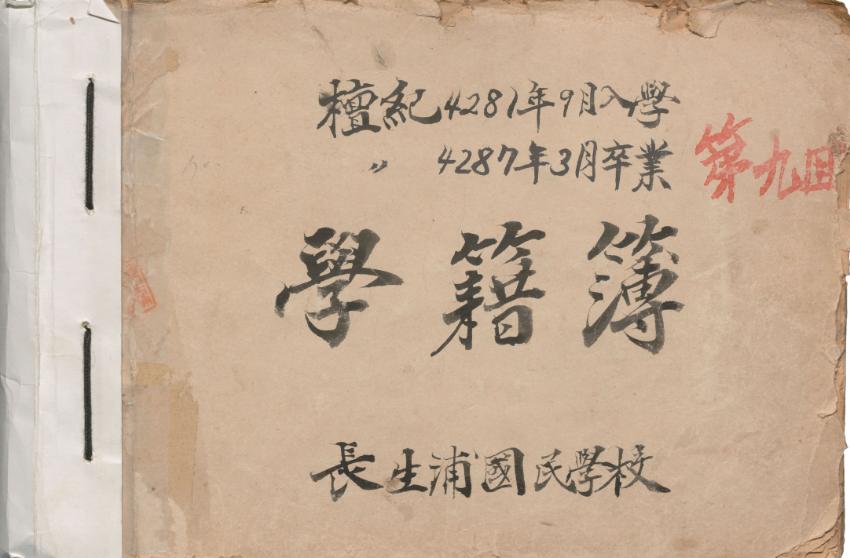 檀紀4281年9月入學
〃 4287年3月卒業
第九回
學籍簿
長生浦國民學校